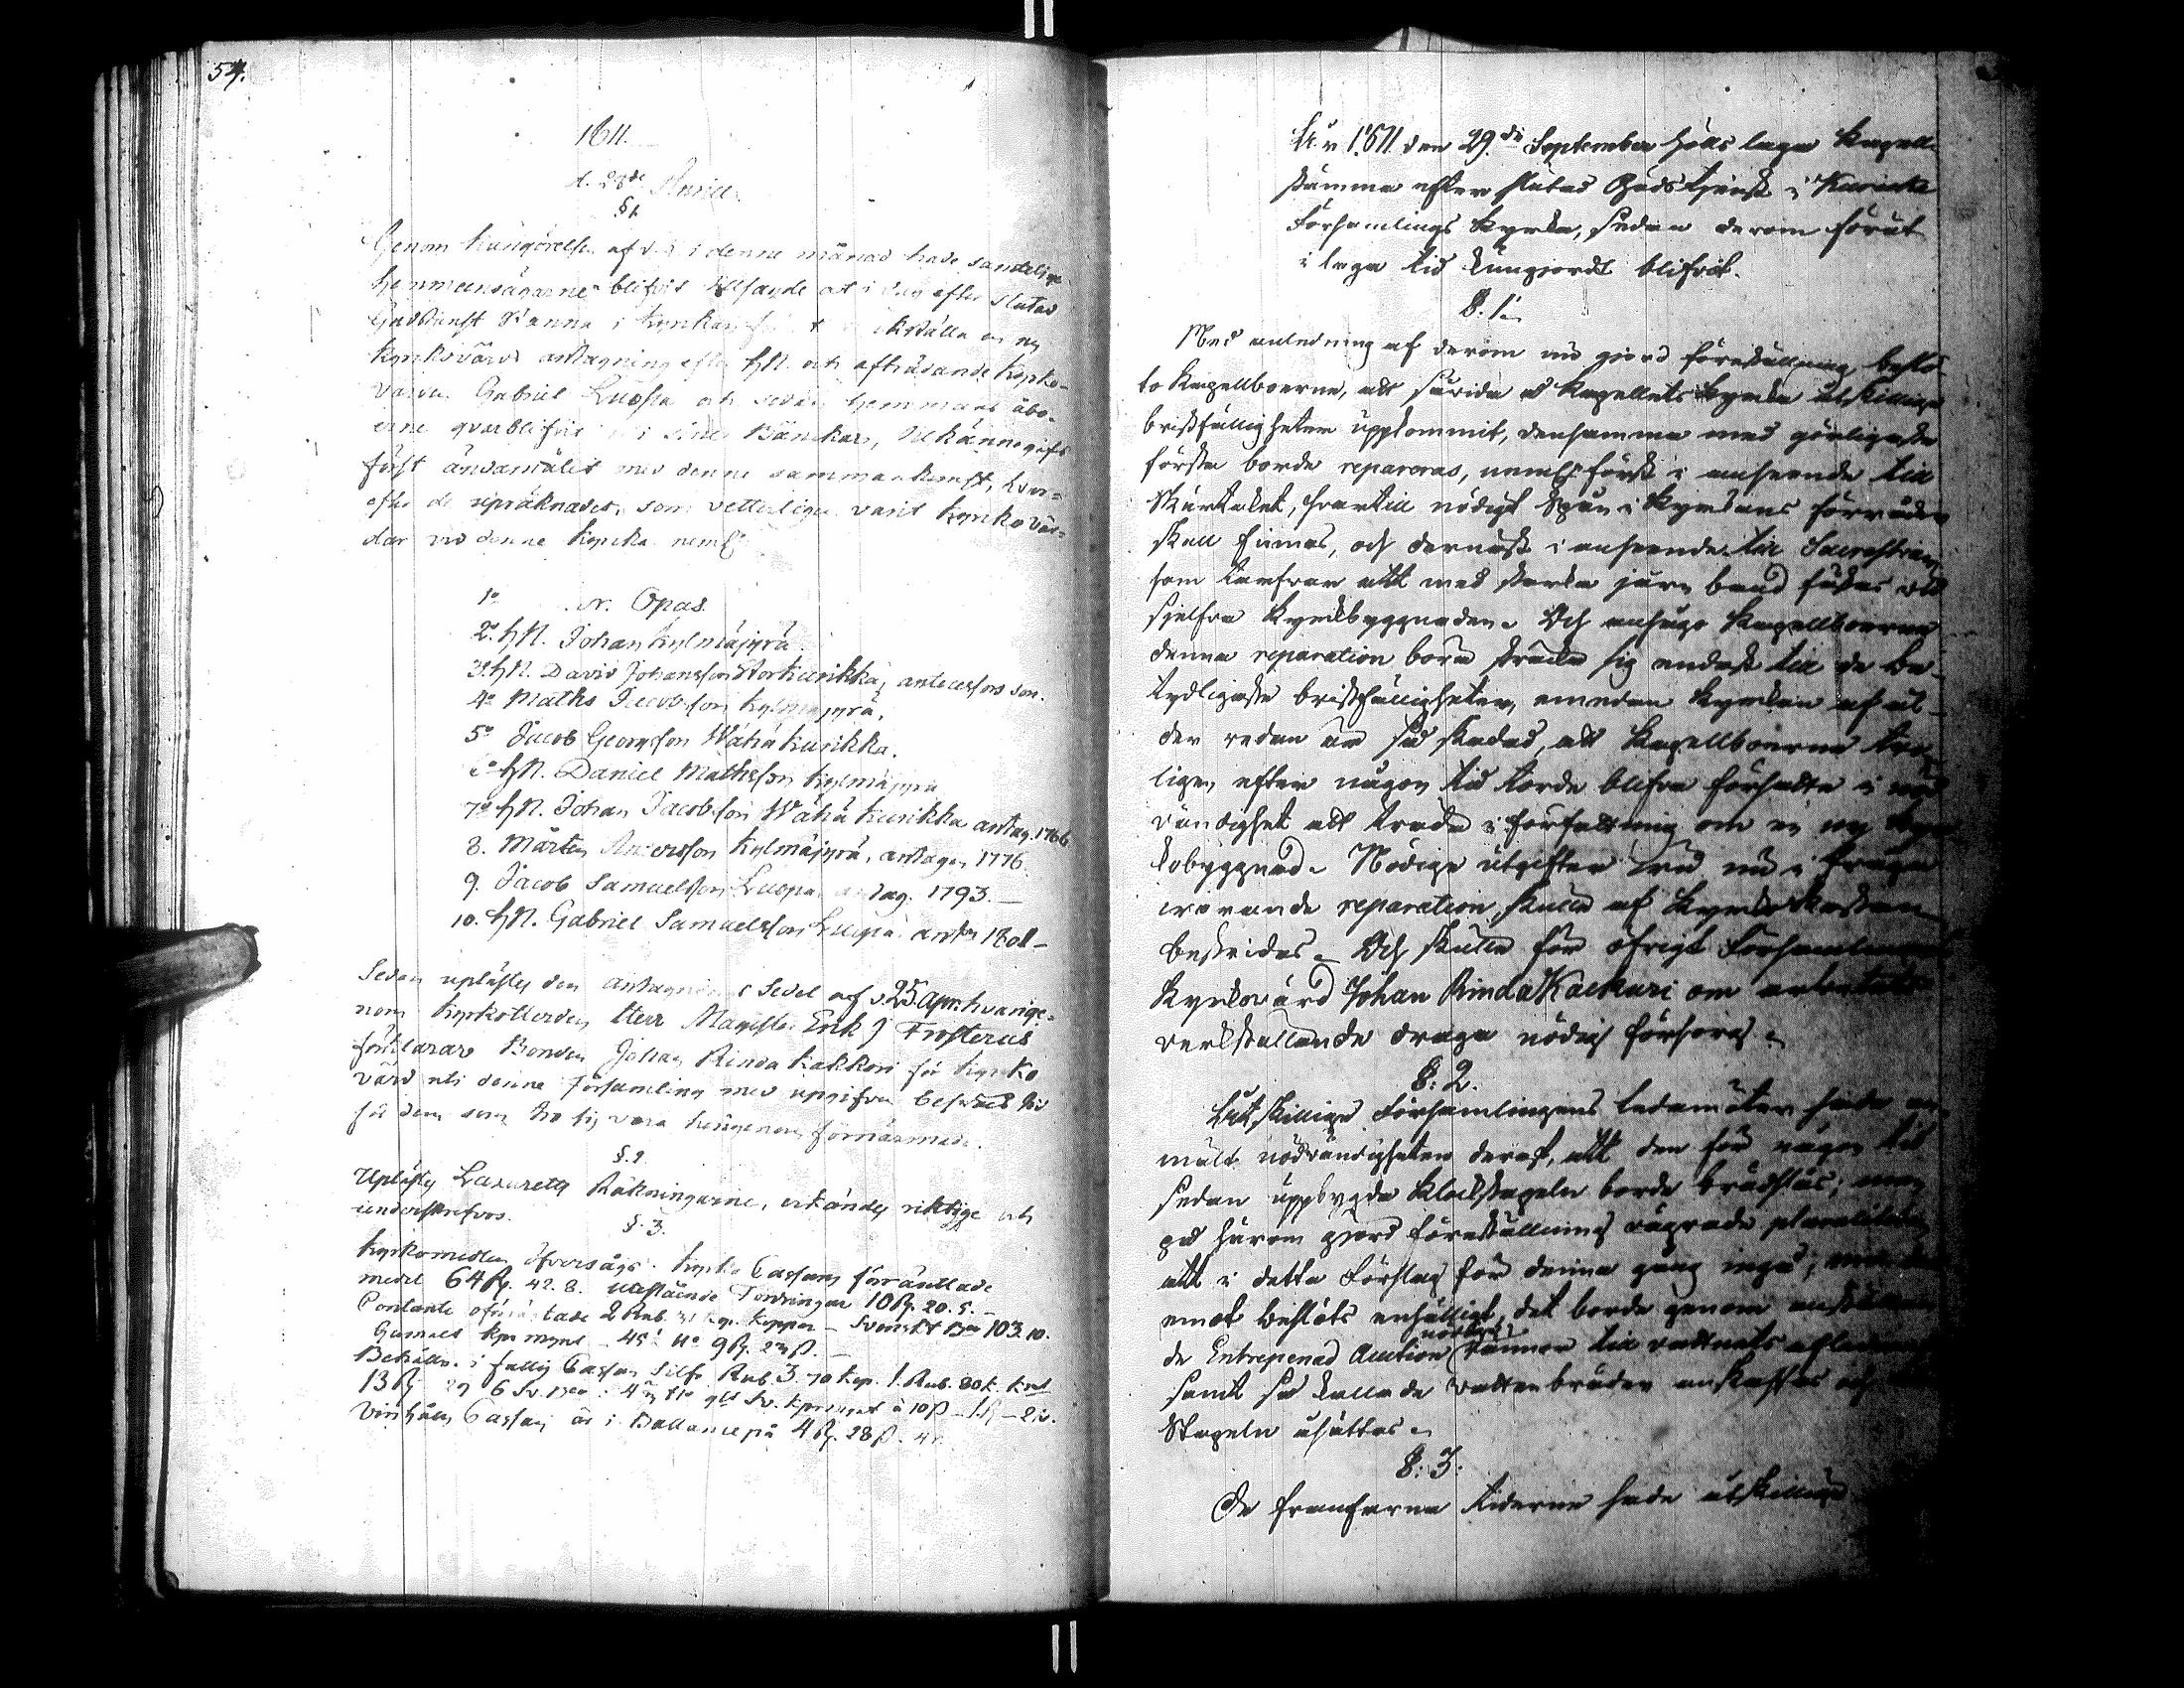 54.
1811.
d. 28de Aprill.
§ 1.
Genom kungörelse af d. i denne månad hade samtelige
hemmansägarne blifvit tillsagde at i dag efter slutad
Gudstienst stanna i kyrkan för at värkställa en ny
kyrkovärds antagning efter HN. och afträdande kyrko-
värden Gabriel Luopa och sedan hemmans åbo-
erne qvarblifvit uti sine Bänckar, tilkännagifs
först ändamålet med denne sammankomst, hvar-
efter de upräknades, som vetterligen varit kyrkovär-
dar vid denne kyrka neml:
1o Opas.
2o HN. Johan Kylmäjyrä
3o HN. David Johansson Storkurikka, antecessors son.
4o Maths Jacobsson Kylmäjyrä.
5o Jacob Georgsson Wähä Kurikka.
6o HN. Daniel Mathsson Kylmäjyrä
7o HN. Johan Jacobsson Wähä Kurikka antag. 1766
8. Mårten Andersson Kylmäjyrä, antagen 1776.
9. Jacob Samuelsson Luopa antag. 1793.—
10. HN. Gabriel Samuelsson Luopa ant. 1801—
Sedan uplästes den antagnings Sedel af d. 25. Apr. hvarige-
nom Kyrkoherden Herr Magister Erik J Frosterus
förklarar Bonden Johan Rinda Kakkori för kyrko
värd uti denne församling med upgifven besvärs tid
för dem som tro sig vara härigenom förnärmade.
§. 2.
Uplästes Lazaretts Räkningarne, erkändes riktige och
underskrefvos.
§. 3.
Kyrkomedlen öfversågs. Kyrko Cassans förräntade
medel 64 R. 42. 8. utestående Fordringar 10 R. 20. 5.—
Contante oförräntade 2 Rub. kop. Koppar — Svenskt 103. 10.
Gamalt kpr mynt 9 R. 23 ß.—
Behålln. i fattig Cassan Silfr. Rub. 3. 70 kop. 1. Rub. 80 k.
13 R 29 6 Sv. Kprmynt à 10 ß
Vinhåls Cassan är i Ballance på 4 R. 28 ß. 4 r.
År 1811 den 29.de September hölls laga Kapell-
stämma efter slutad Gudstjenst i Kurikka
Församlings Kyrka, sedan derom förut
i laga tid kungjordt blifvit.
§. 1.
Med anledning af derom nu gjord föreställning, beslö-
to Kapellboerne, att såvida å Kapellets Kyrka åtskillige
bristfälligheter uppkommit, densamma med görligaste
första borde repareras, neml: först i anseende till
Skurtaket, hvartill nödigt Spån i Kyrkans förråder
skall finnas, och dernäst i anseende till Sacrestian,
som tarfvar att med starka järn band fästas vid
sjelfva Kyrkbyggnaden. Och ansågo Kapellboerne
denna reparation böra sträcka sig endast till de be-
tydligaste bristfälligheter, emedan Kyrkan af ål-
der redan är så skadad, att Kapellboerne tro-
ligen efter någon tid torde blifva försatte i nöd
vändighet att träda i författning om en ny Kyr-
kobyggnad. Nödige utgifter vid nu i fråga
varande reparation skulle af Kyrko Kassan
bestridas. Och skulle för öfrigt Församlingens
Kyrkovärd Johan Rinda Kackuri om arbetets
verkställande draga nödig försorg.
§: 2.
Åtskillige Församlingens ledamöter hade an
mält nödvändigheten deraf, att den för någon tid
sedan uppbygda Klockstapeln borde brädslås; men
på härom gjord föreställning vägrade pluraliteten
att i detta Förslag för denna gång ingå; men der
emot beslöts enhälligt, det borde genom anställan
de Entrepenad Auction nödige rännor till vattnets afledande
samt så kallade vattenbräder anskaffas och
Stapeln åsättas.
§: 3.
De framfarna tiderne hade åtskillige